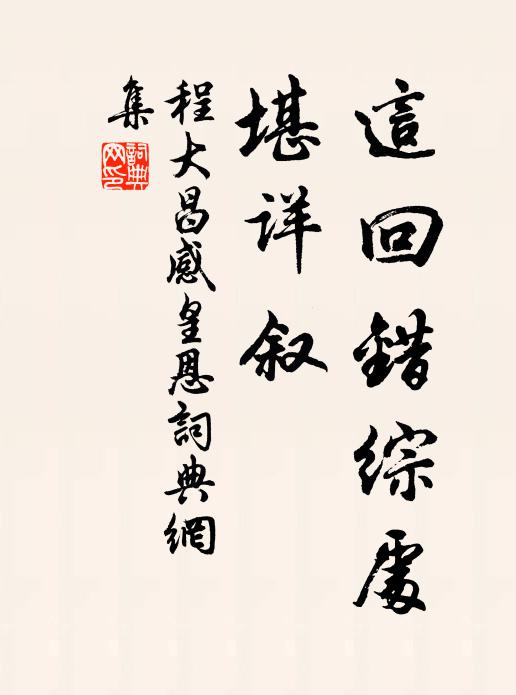 這回錯綜處
堪详叙
程大昌感皇恩詞典網
集
詞典
网印